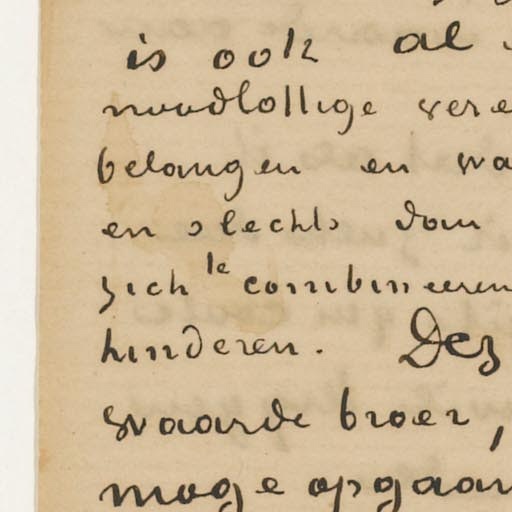 is ook al
noodlottige vere
belangen en wa
en slechts dom
zich te combineeren
hinderen. Dez
waarde broer,
moge opgaan